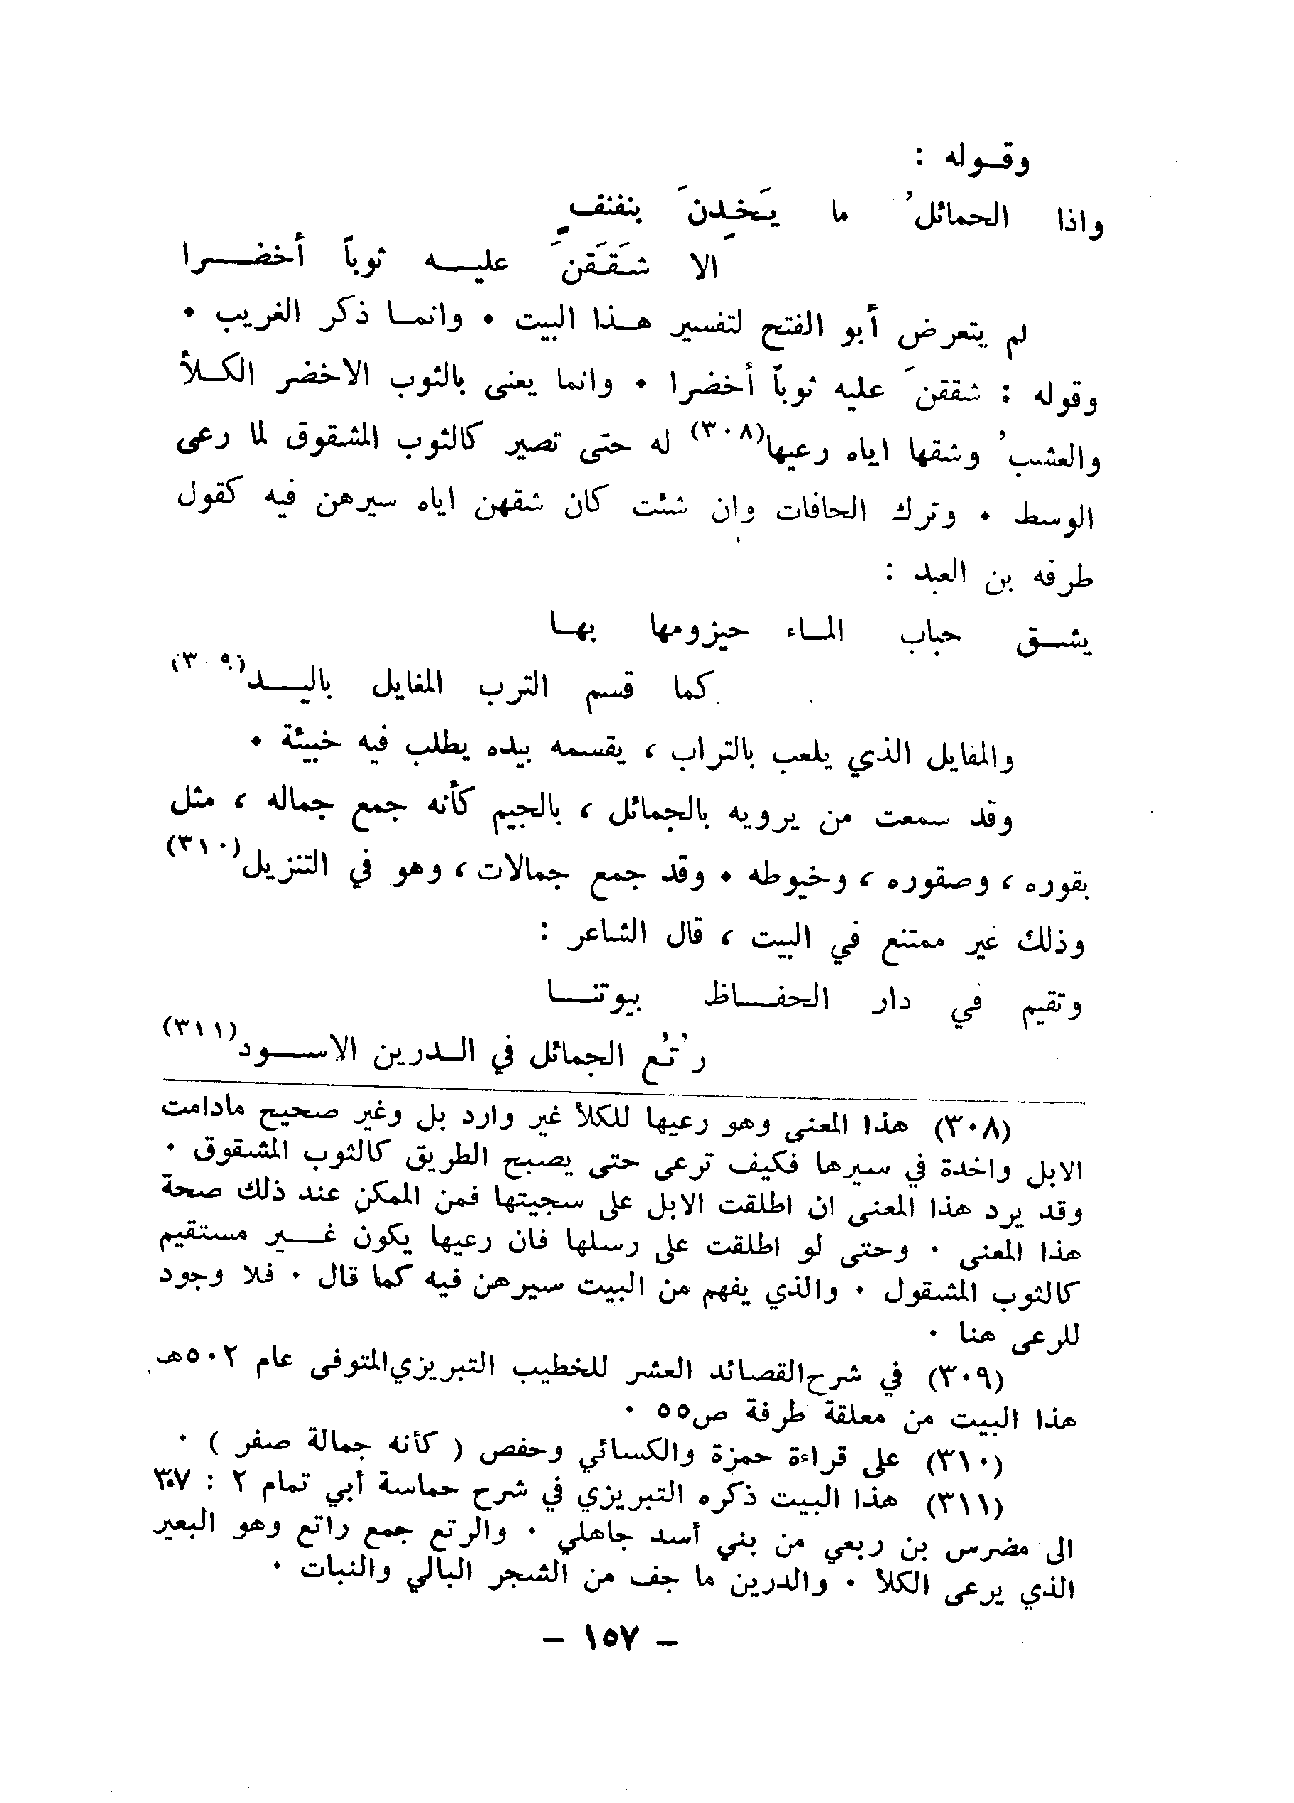 وقوله :
واذا الحمائلُ ما يَخِدنَ بنفنفٍ
الا شَقَقنَ عليه ثوباً أخضرا
لم يتعرض أبو الفتح لتفسير هذا البيت ٠ وانما ذكر الغريب ٠
وقوله : شققنَ عليه ثوباً أخضرا ٠ وانما يعنى بالثوب الاخضر الكلأ
والعشبُ وشقها اياه رعيها(٣٠٨) له حتى تصير كالثوب المشقوق لما رعى
الوسط ٠ وترك الحافات وإن شئت كان شقهن اياه سيرهن فيه كقول
طرفه بن العبد :
يشق حباب الماء حيزومها بها
كما قسم الترب المفايل باليد(٣٠٩)
والمفايل الذي يلعب بالتراب ، يقسمه بيده يطلب فيه خبيئة ٠
وقد سمعت من يرويه بالجمائل ، بالجيم كأنه جمع جماله ، مثل
بقوره ، وصقوره ، وخيوطه ٠ وقد جمع جمالات ، وهو في التنزيل(٣١٠)
وذلك غير ممتنع في البيت ، قال الشاعر :
وتقيم في دار الحفاظ بيوتنا
رُتُع الجمائل في الدرين الاسود(٣١١)
(٣٠٨) هذا المعنى وهو رعيها للكلأ غير وارد بل وغير صحيح مادامت
الابل واخدة في سيرها فكيف ترعى حتى يصبح الطريق كالثوب المشقوق ٠
وقد يرد هذا المعنى ان اطلقت الابل على سجيتها فمن الممكن عند ذلك صحة
هذا المعنى ٠ وحتى لو اطلقت على رسلها فان رعيها يكون غير مستقيم
كالثوب المشقول ٠ والذي يفهم من البيت سيرهن فيه كما قال ٠ فلا وجود
للرعى هنا ٠
(٣٠٩) في شرح القصائد العشر للخطيب التبريزي المتوفى عام ٥٠٢هـ
هذا البيت من معلقة طرفة ص٥٥ ٠
(٣١٠) على قراءة حمزة والكسائي وحفص ( كأنه جمالة صفر ) ٠
(٣١١) هذا البيت ذكره التبريزي في شرح حماسة أبي تمام ٢ : ٣٠٧
الى مضرس بن ربعي من بني أسد جاهلي ٠ والرتع جمع راتع وهو البعير
الذي يرعى الكلأ ٠ والدرين ما جف من الشجر البالي والنبات ٠
– ١٥٧ –